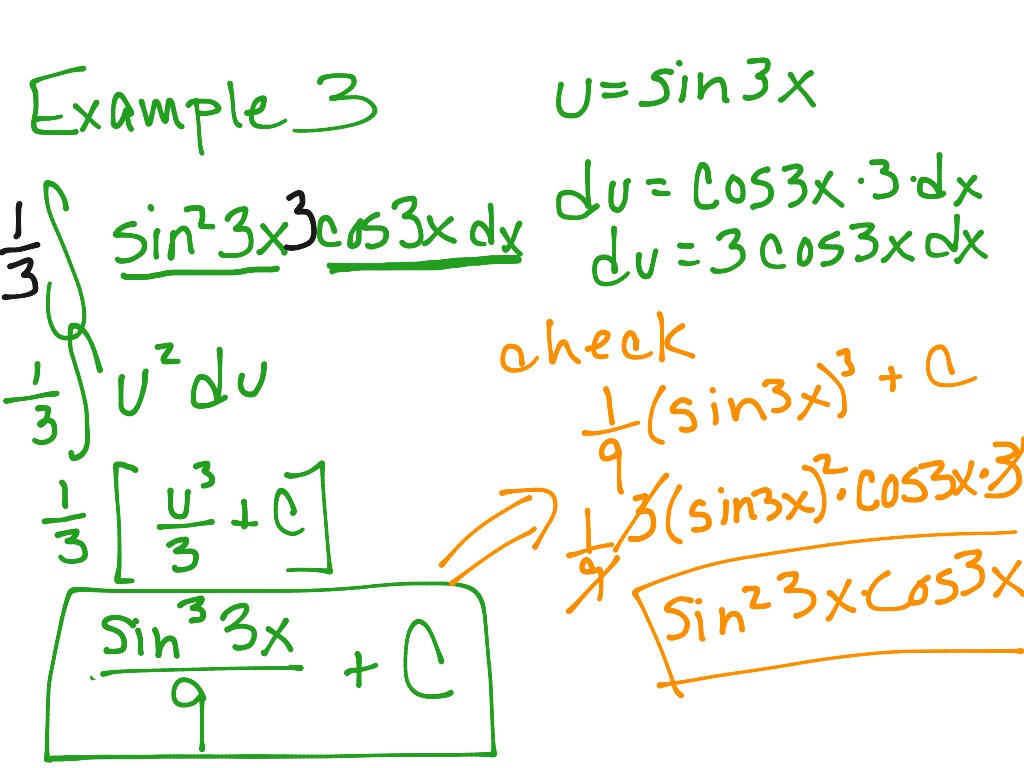 Example 3
1/3 ∫ sin² 3x 3 cos 3x dx
1/3 ∫ u² du
1/3 [ u³/3 + C ]
sin³ 3x / 9 + C
u = sin 3x
du = cos 3x · 3 · dx
du = 3 cos 3x dx
check
1/9 (sin 3x)³ + C
1/9 3 (sin 3x)² · cos 3x · 3
sin² 3x · cos 3x